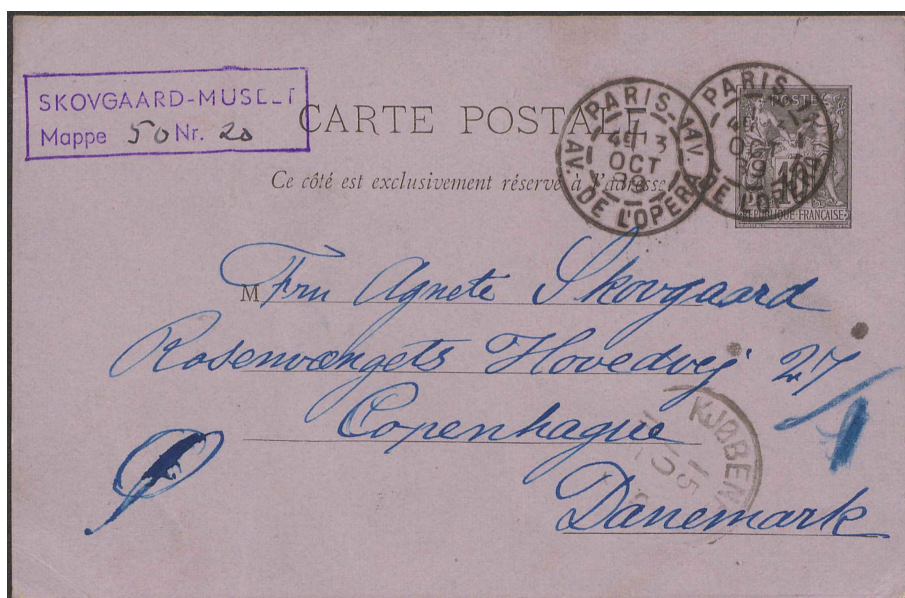 SKOVGAARD-MUSEET
Mappe 50 Nr. 20
CARTE POSTALE
Ce côté est exclusivement réservé à l'adresse
PARIS
AV. DE L'OPERA
4E 13
OCT
89
PARIS
AV. DE L'OPERA
4E
OCT
89
POSTE
10
REPUBLIQUE FRANÇAISE
M Fru Agnete Skovgaard
Rosenvængets Hovedvej 27
Copenhague
KJØBENH
15
Danemark